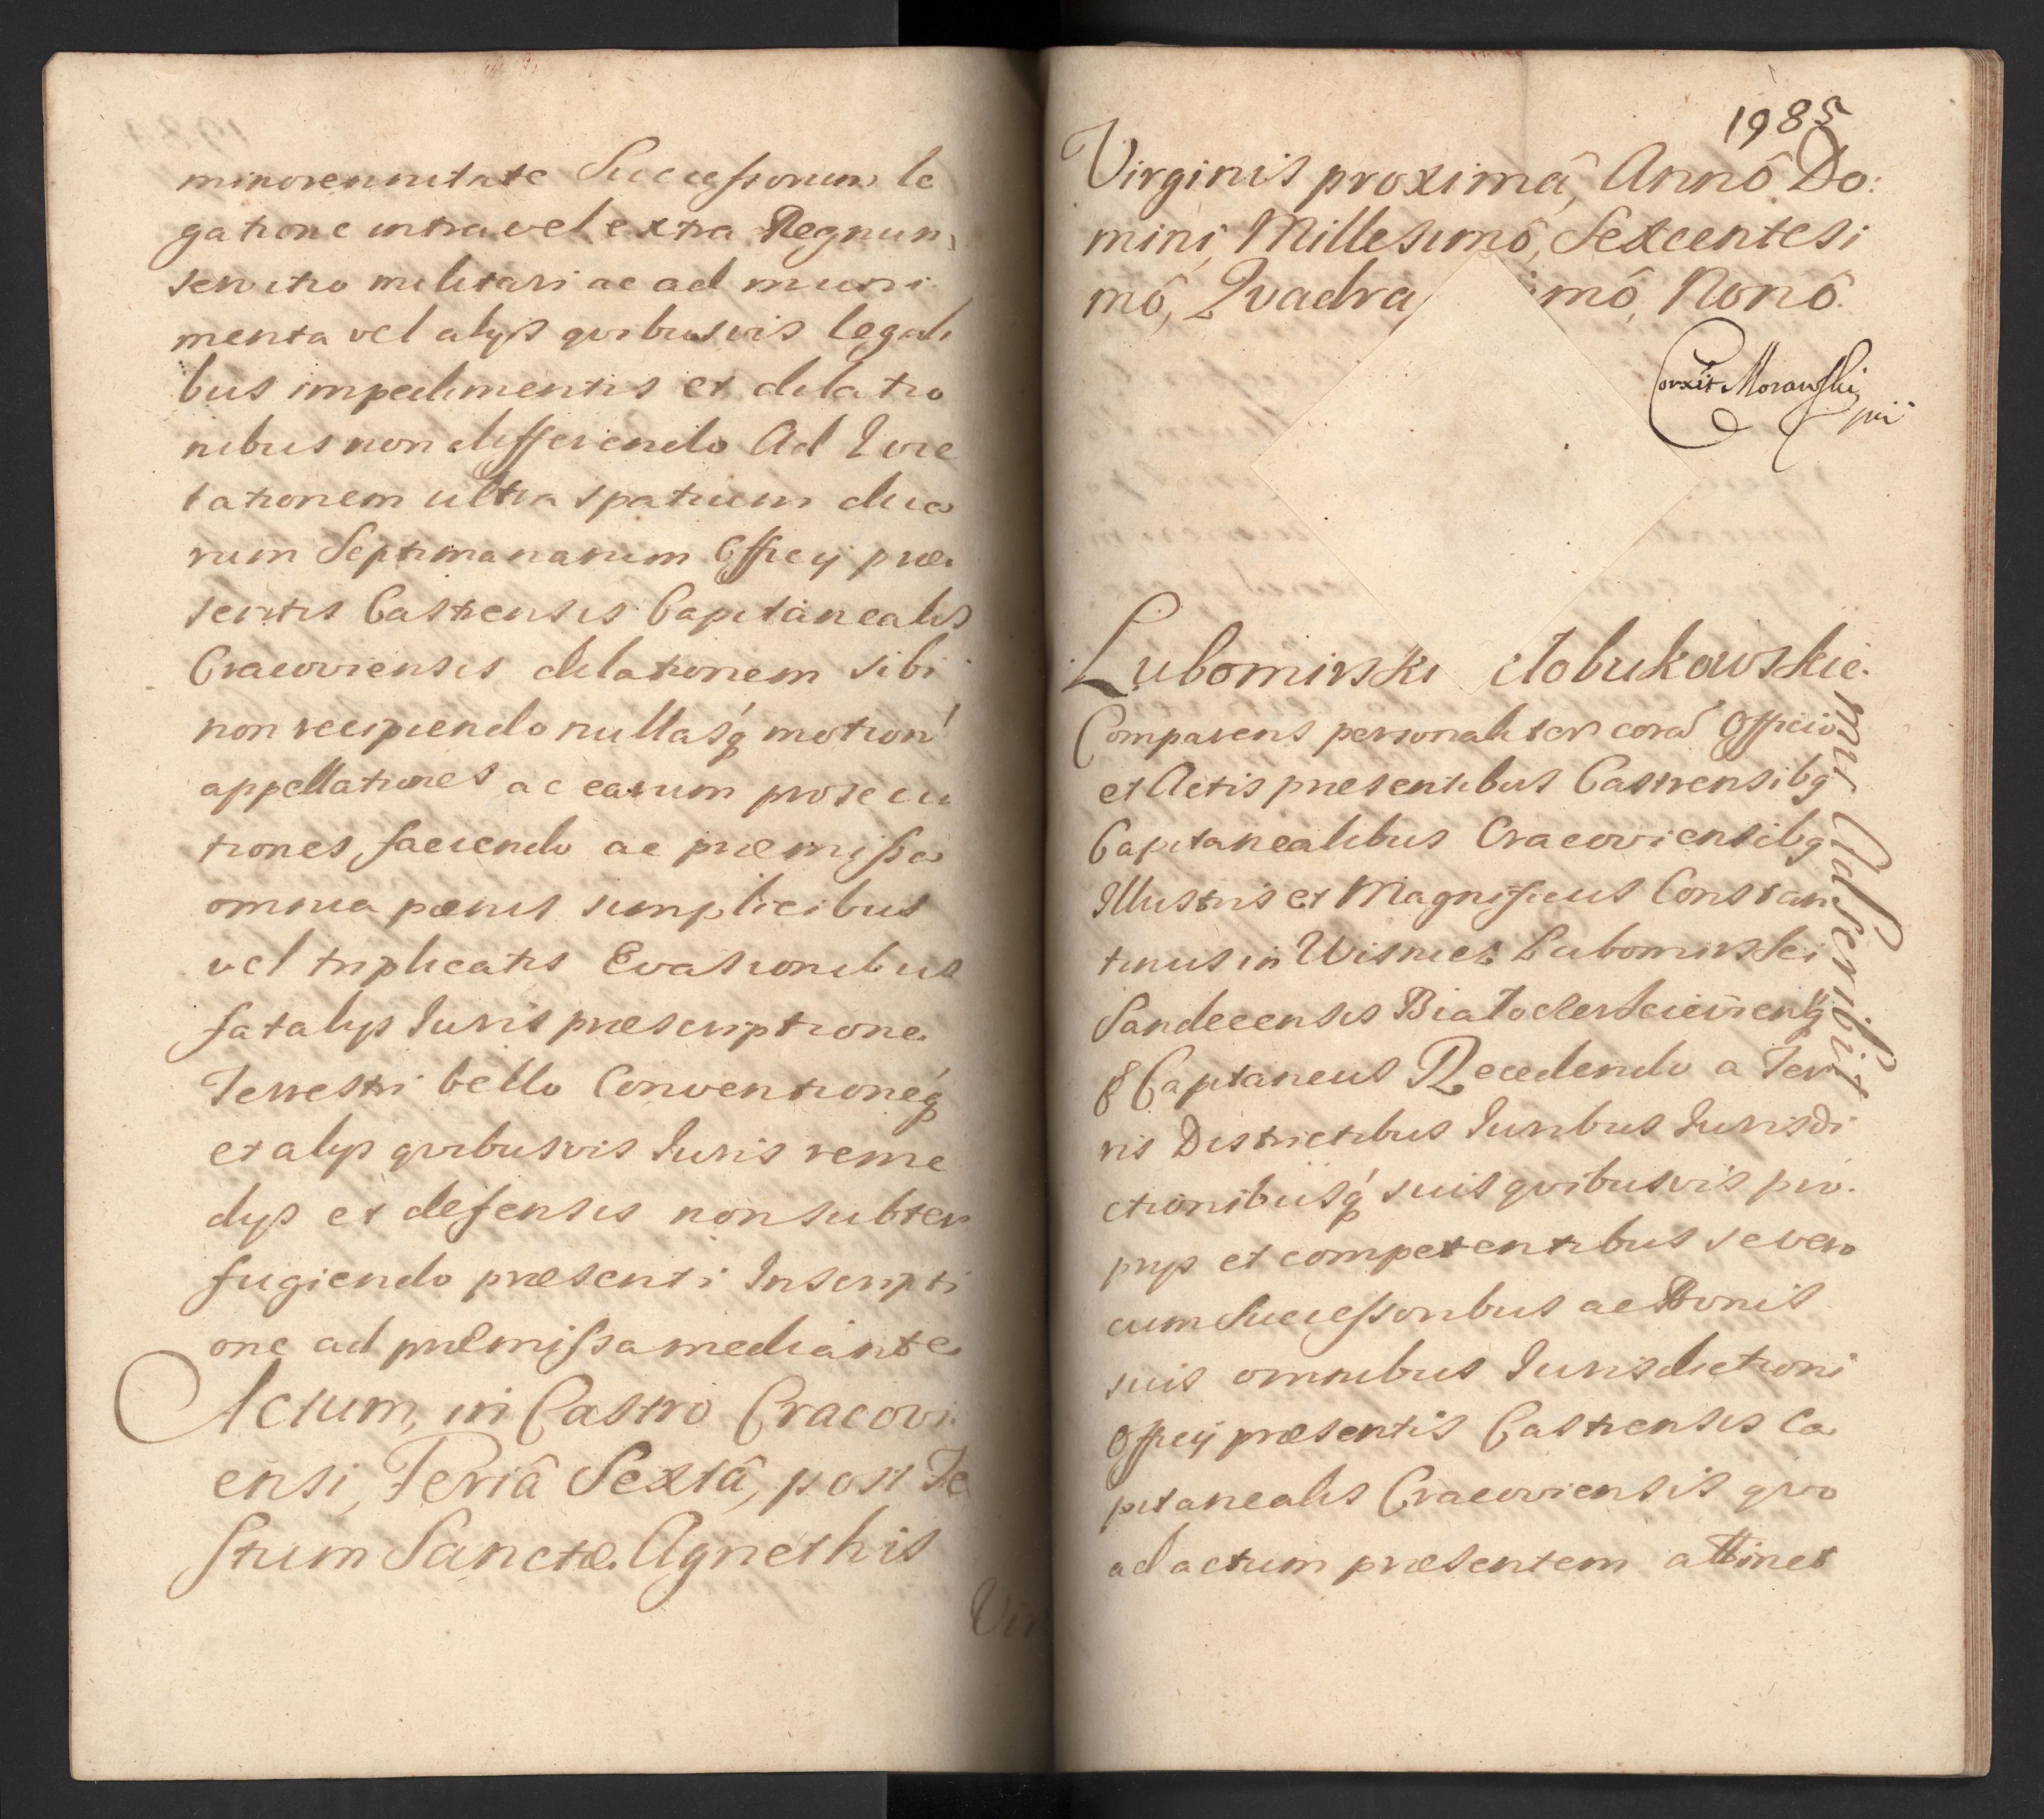 minorennitate Successorum le
gatione intra vel extra Regnum
servitio militari ac ad muni
menta vel alijs qvibusvis legali
bus impedimentis et dilatio
nibus non differendo Ad Qvie
tationem ultra spatium dua
rum Septimanarum Officij præ
sentis Castrensis Capitanealis
Cracoviensis dilationem sibi
non recipiendo nullasq́ motion'
appellationes ac earum prosecu
tiones faciendo ac præmissa
omnia pænis simplicibus
vel triplicatis Evasionibus
fatalijs Juris præscriptione
Terrestri bello Conventioneq́
et alijs qvibusvis Juris reme
dijs et defensis non subter
fugiendo præsenti Inscripti
one ad præmissa mediante
Actum, in Castro Cracovi
ensi, Feriâ Sextâ, post Fe
stum Sanctæ Agnethis
Vir
1985
Virginis proximâ, Annô Do:
mini, Millesimô, Sexcentesi
mô, Qvadra imô, Nonô.
Corxit Morawski
Lubomirski Łobukowskie.
mu Adscribit
Comparens personaliter corā Officio
et Actis præsentibus Castrensibq
Capitanealibus Cracoviensibq
Illustris et Magnificus Constan
tinus in Wisnicz Lubomirski
Sandecensis
Capitaneus Recedendo a Ter
ris Districtibus Juribus Jurisdi
ctionibusq́ suis qvibusvis pro.
prijs et competentibus se vero
cum Successoribus ac Bonis
suis omnibus Jurisdictioni
Officij præsentis Castrensis Ca
pitanealis Cracoviensis qvo
ad actum præsentem attinet